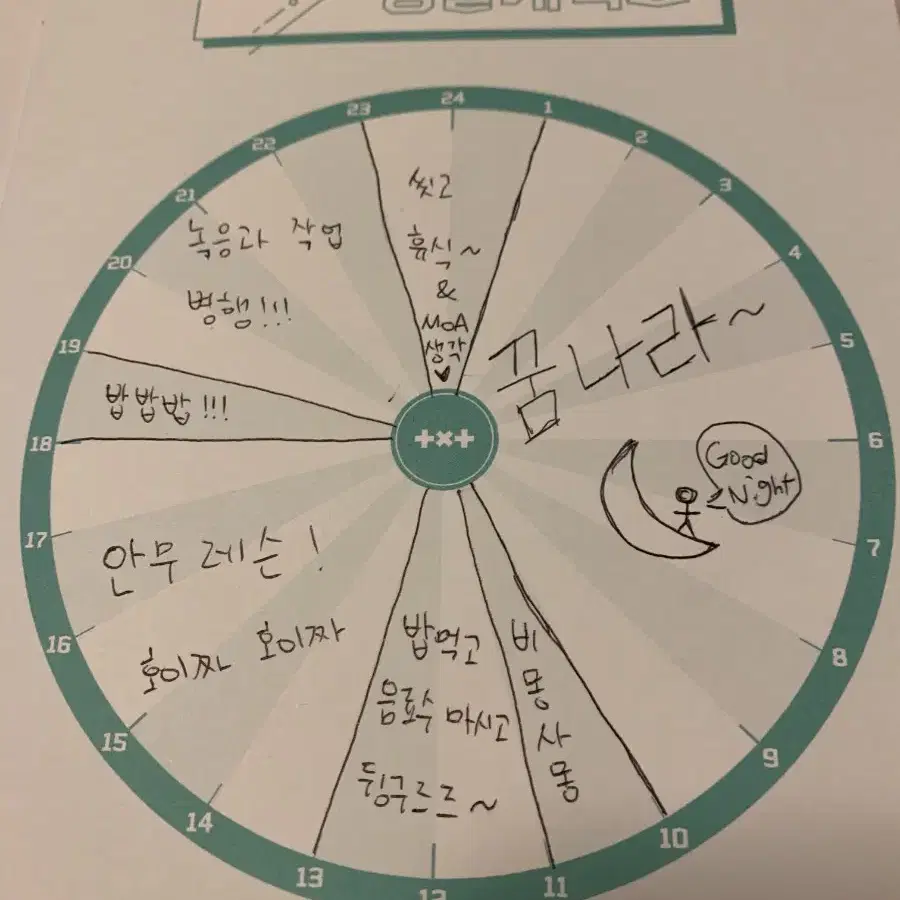 24
1
2
3
4
5
6
7
8
9
10
11
12
13
14
15
16
17
18
19
20
21
22
23
씻고
휴식~
&
MOA
생각
♥
꿈나라~
Good
Night
비
몽
사
몽
밥먹고
음료수 마시고
뒹구르르~
안무 레슨!
호이짜 호이짜
밥밥밥!!!
녹음과 작업
병행!!!
+×+